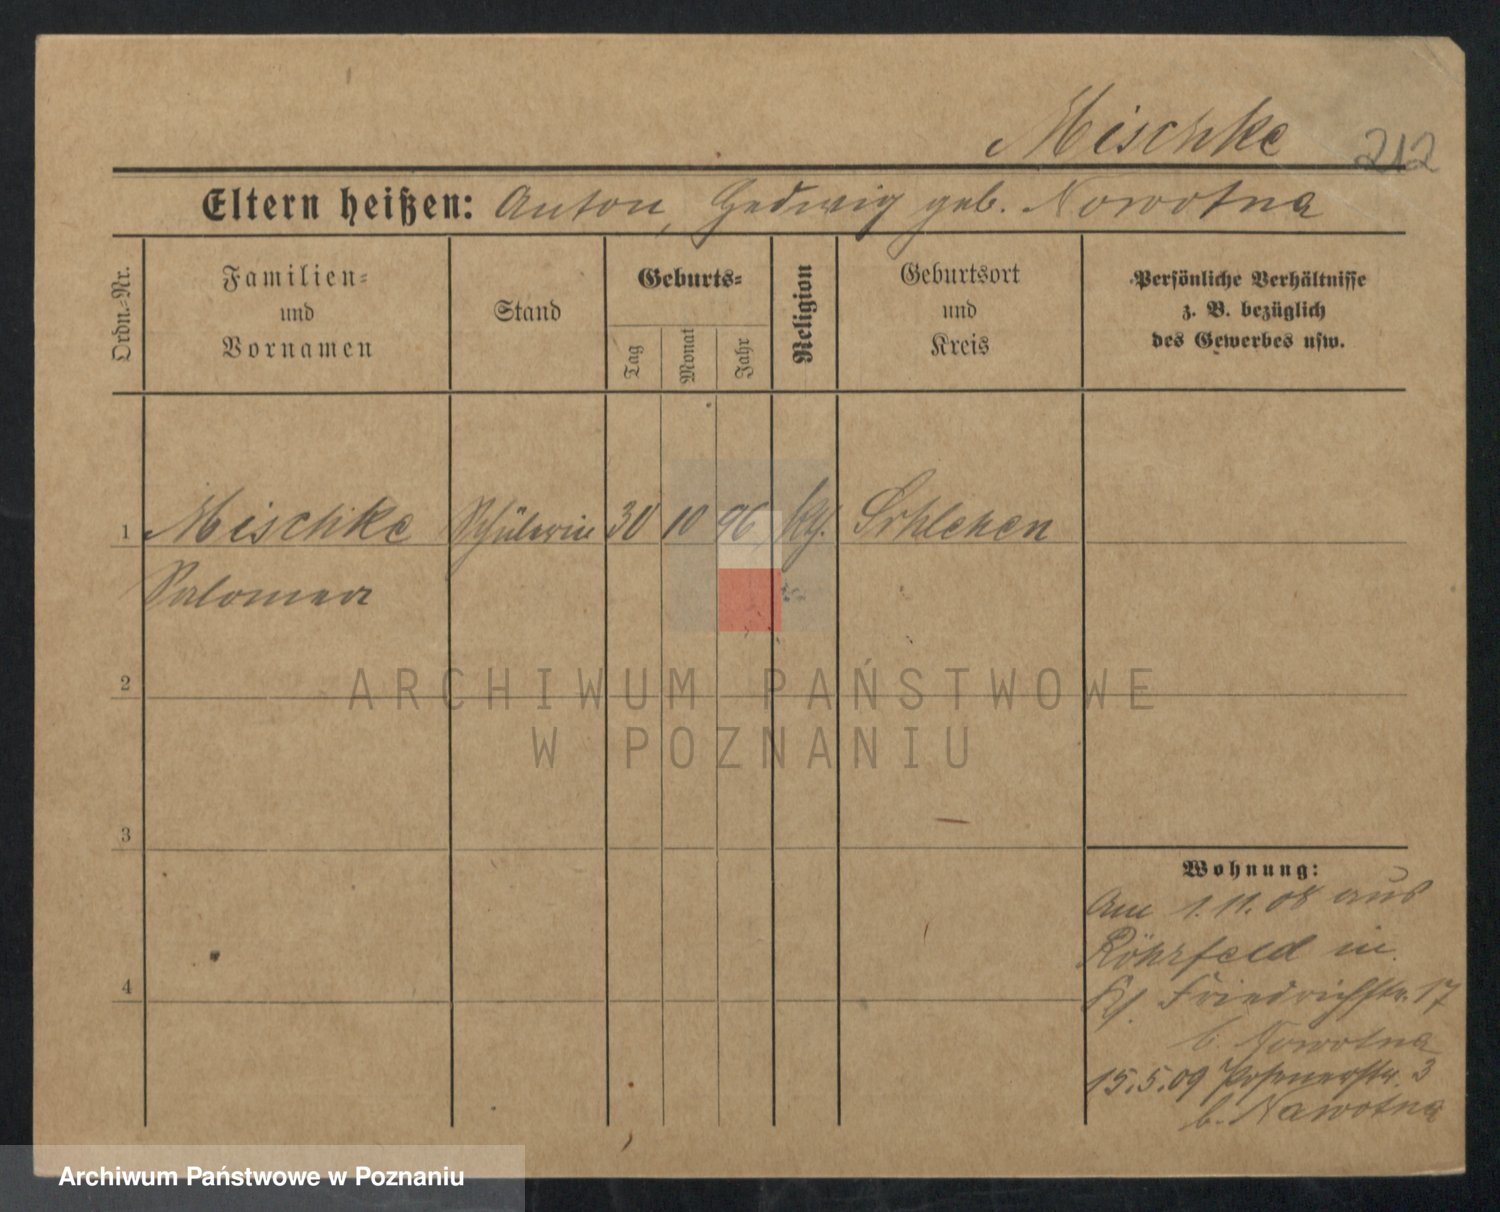 Mischke 212
Eltern heißen: Anton, Hedwig geb. Nowotna
Ordn.-Nr.
Familien-
und
Vornamen
Stand
Geburts-
Tag
Monat
Jahr
Religion
Geburtsort
und
Kreis
Persönliche Verhältnisse
z. B. bezüglich
des Gewerbes usw.
1 Mischke Schülerin 30 10 96 kath. Schlehen
Salomea
2
ARCHIWUM PAŃSTWOWE
W POZNANIU
3
Wohnung:
Am 1.11.08 aus
Röhrfeld in
4
Friedrichstr. 17
b. Nowotna
15.5.09 Posenerstr. 3
b. Nawotna
Archiwum Państwowe w Poznaniu